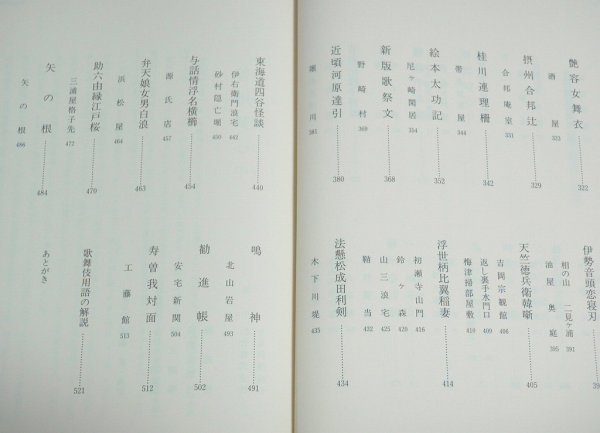 艶容女舞衣 322
酒屋 323
摂州合邦辻 329
合邦庵室 331
桂川連理柵 342
帯屋 344
絵本太功記 352
尼ヶ崎閑居 354
新版歌祭文 368
野崎村 369
近頃河原達引 380
堀川 381
伊勢音頭恋寝刃
相の山 二見ヶ浦 391
油屋奥庭 395
天竺徳兵衛韓噺 405
吉岡宗観館 406
返し裏手水門口 409
梅津掃部屋敷 410
浮世柄比翼稲妻 414
初瀬寺山門 416
鈴ヶ森 420
山三浪宅 425
鞘当 432
法懸松成田利剣 434
木下川堤 435
東海道四谷怪談 440
伊右衛門浪宅 442
砂村隠亡堀 450
与話情浮名横櫛 454
源氏店 457
弁天娘女男白浪 463
浜松屋 464
助六由縁江戸桜 470
三浦屋格子先 472
矢の根 484
矢の根 486
鳴神 491
北山岩屋 493
勧進帳 502
安宅新関 504
寿曽我対面 512
工藤館 513
歌舞伎用語の解説 521
あとがき